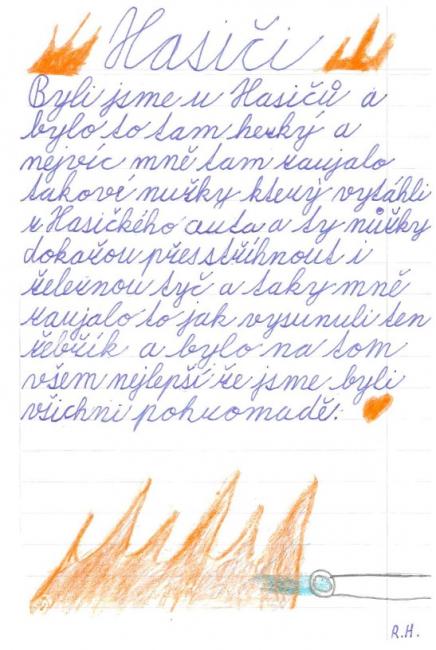 Hasiči
Byli jsme u Hasičů a
bylo to tam hezký a
nejvíc mně tam zaujalo
takové nužky který vytáhli
z Hasičkého auta a ty nůžky
dokažou přesstříhnout i
železnou tyč a taky mně
zaujalo to jak vysunuli ten
žebřík a bylo na tom
všem nejlepší že jsme byli
všichni pohromadě.
R.H.